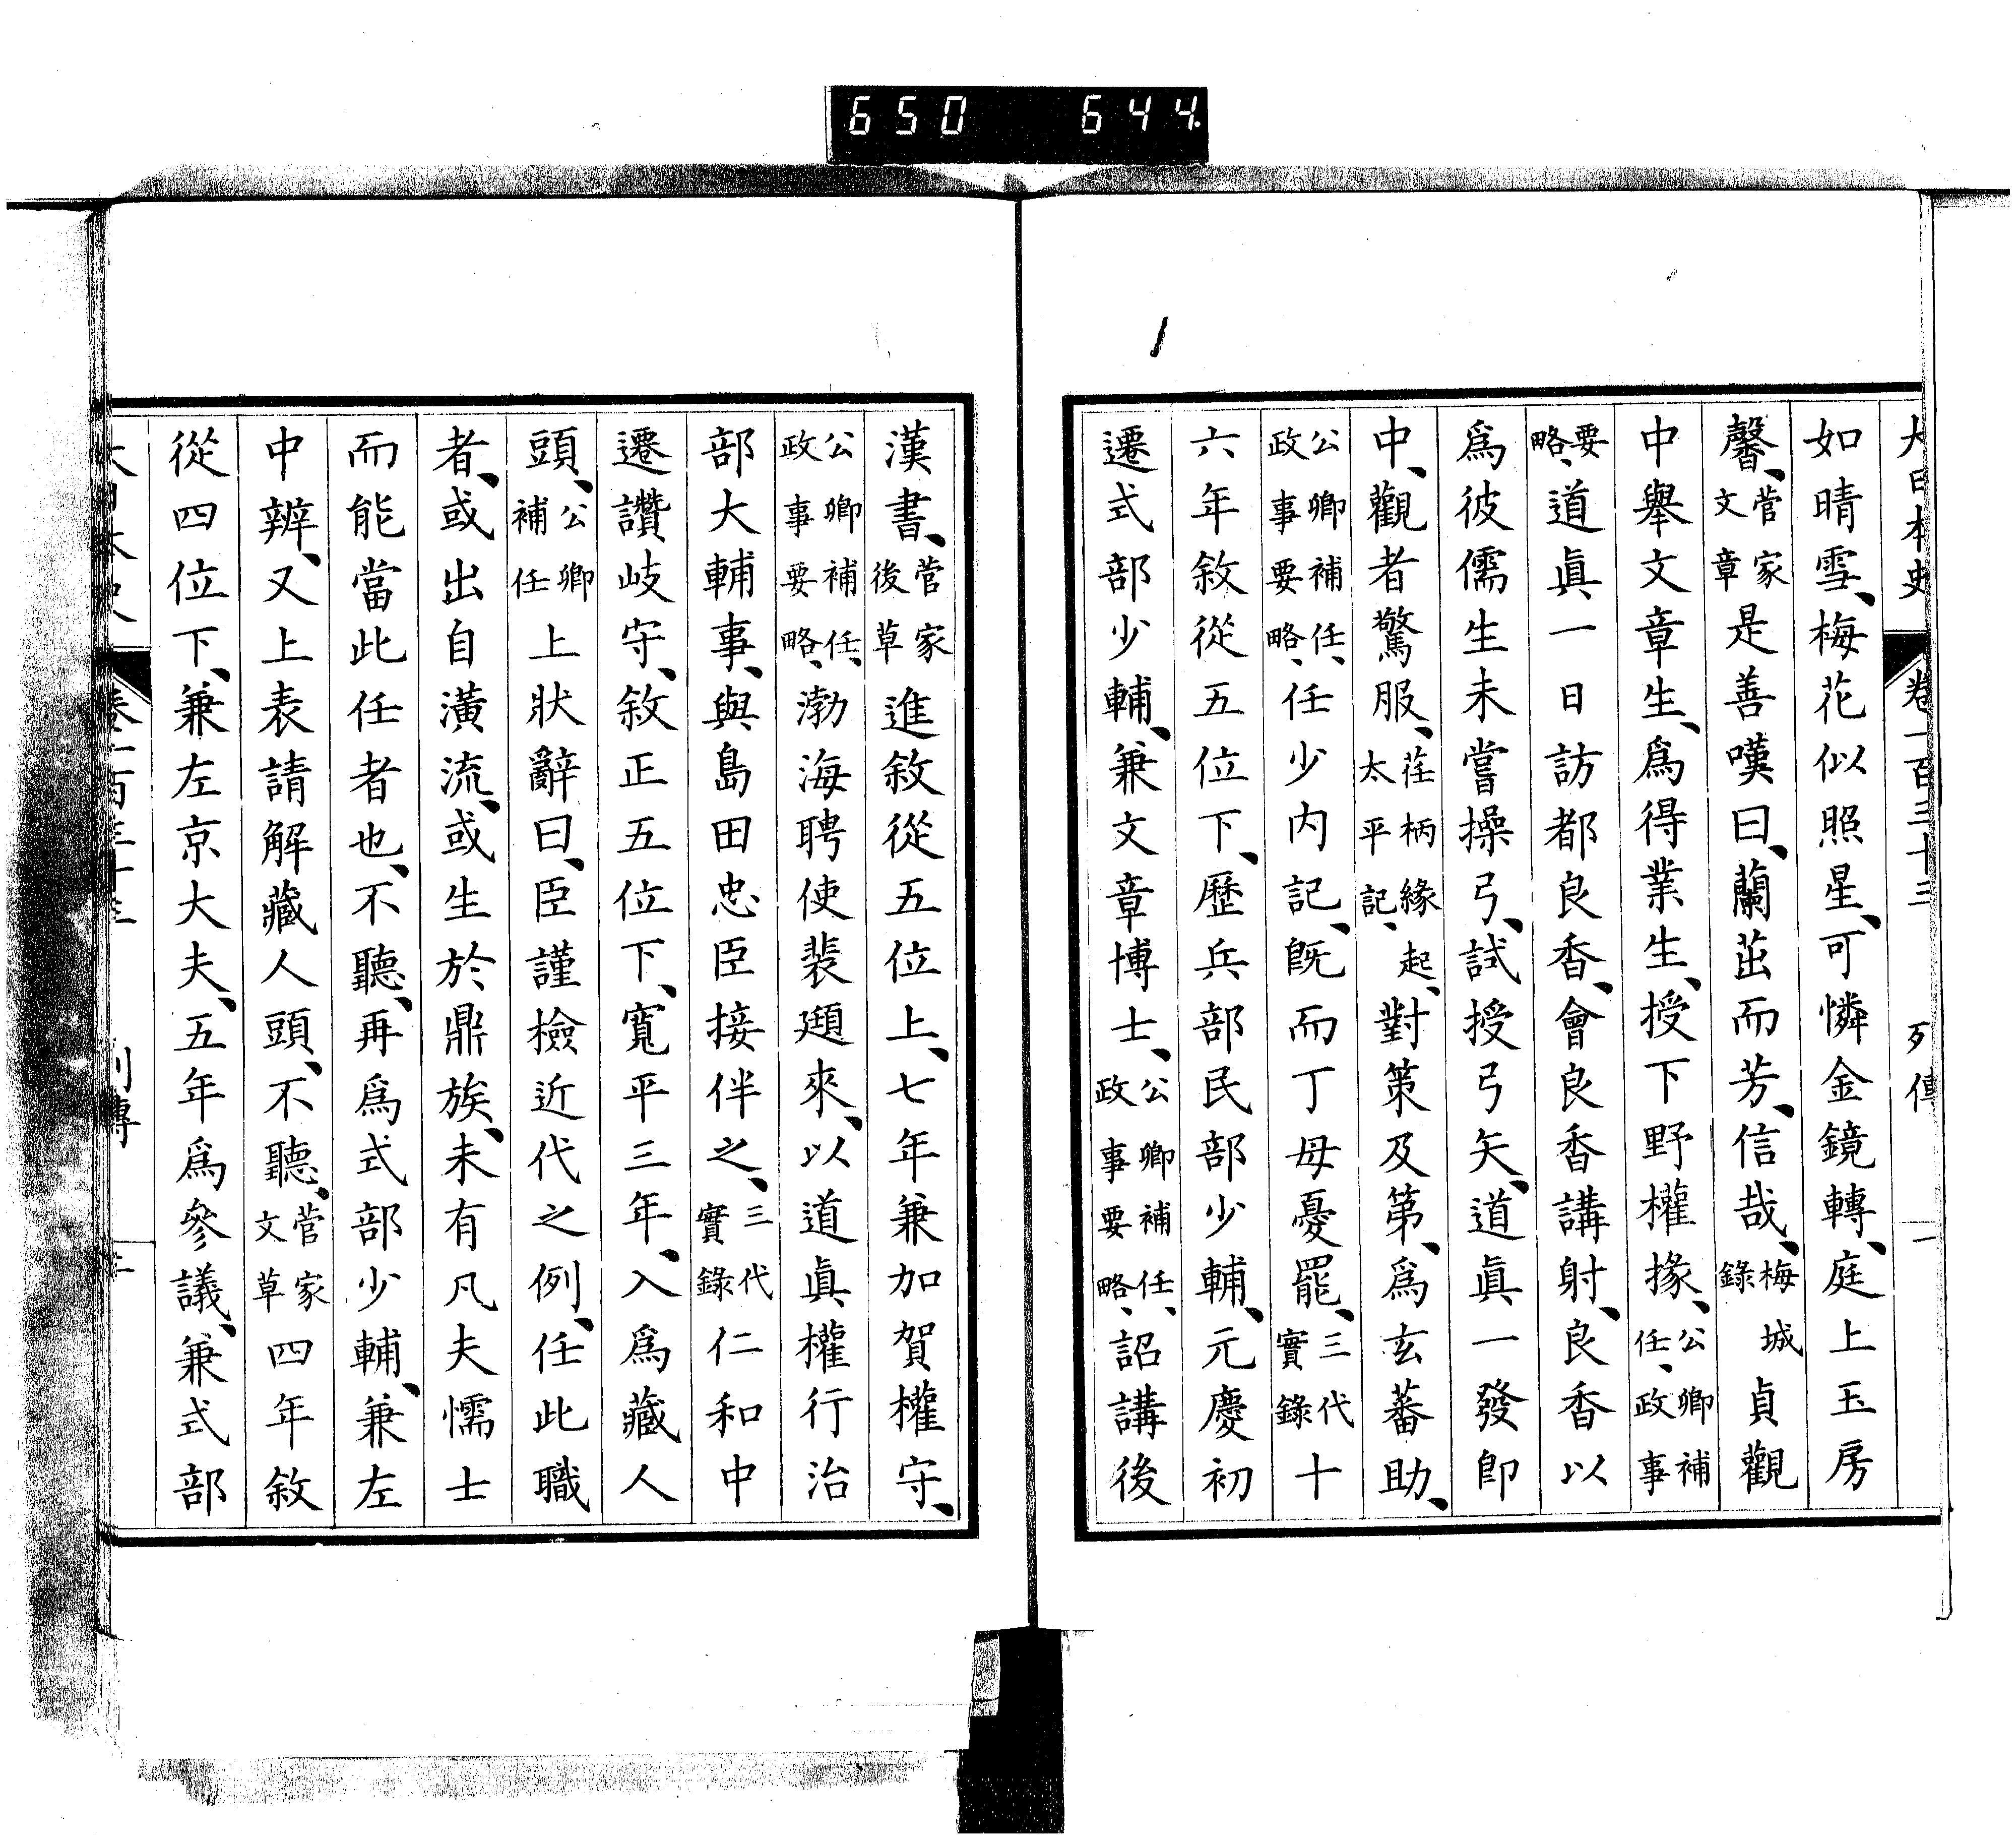 650 644
大日本史 卷一百三十三 列傳 一
如晴雪、梅花似照星、可憐金鏡轉、庭上玉房
馨、菅家文章是善嘆曰、蘭茁而芳、信哉、梅城錄貞觀
中舉文章生、爲得業生、授下野權掾、公卿補任、政事
要略、道眞一日訪都良香、會良香講射、良香以
爲彼儒生未嘗操弓、試授弓矢、道眞一發卽
中、觀者驚服、荏柄緣起、太平記、對策及第、爲玄蕃助、
公卿補任、政事要略、任少內記、旣而丁母憂罷、三代實錄十
六年敘從五位下、歷兵部民部少輔、元慶初
遷式部少輔、兼文章博士、公卿補任、政事要略、詔講後
漢書、菅家後草進敘從五位上、七年兼加賀權守、
公卿補任、政事要略、渤海聘使裴頲來、以道眞權行治
部大輔事、與島田忠臣接伴之、三代實錄仁和中
遷讚岐守、敘正五位下、寬平三年、入爲藏人
頭、公卿補任上狀辭曰、臣謹檢近代之例、任此職
者、或出自潢流、或生於鼎族、未有凡夫懦士
而能當此任者也、不聽、再爲式部少輔、兼左
中辨、又上表請解藏人頭、不聽、菅家文草四年敘
從四位下、兼左京大夫、五年爲參議、兼式部